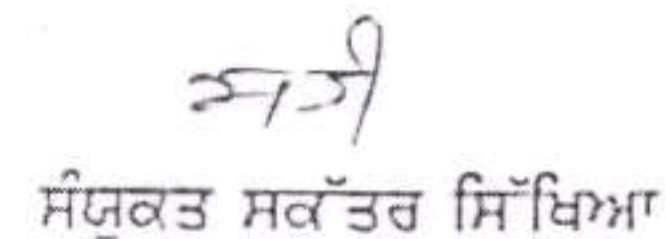 ਸਹੀ
ਸੰਯੁਕਤ ਸਕੱਤਰ ਸਿੱਖਿਆ